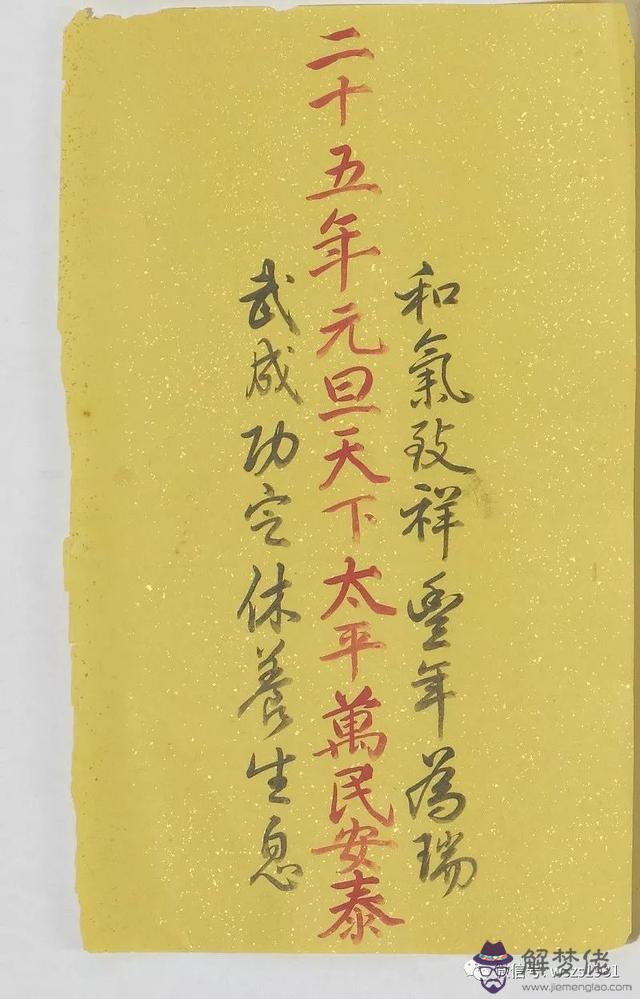 和氣致祥豐年為瑞
二十五年元旦天下太平萬民安泰
武成功定休養生息
解梦佬
www.jiemenglao.com